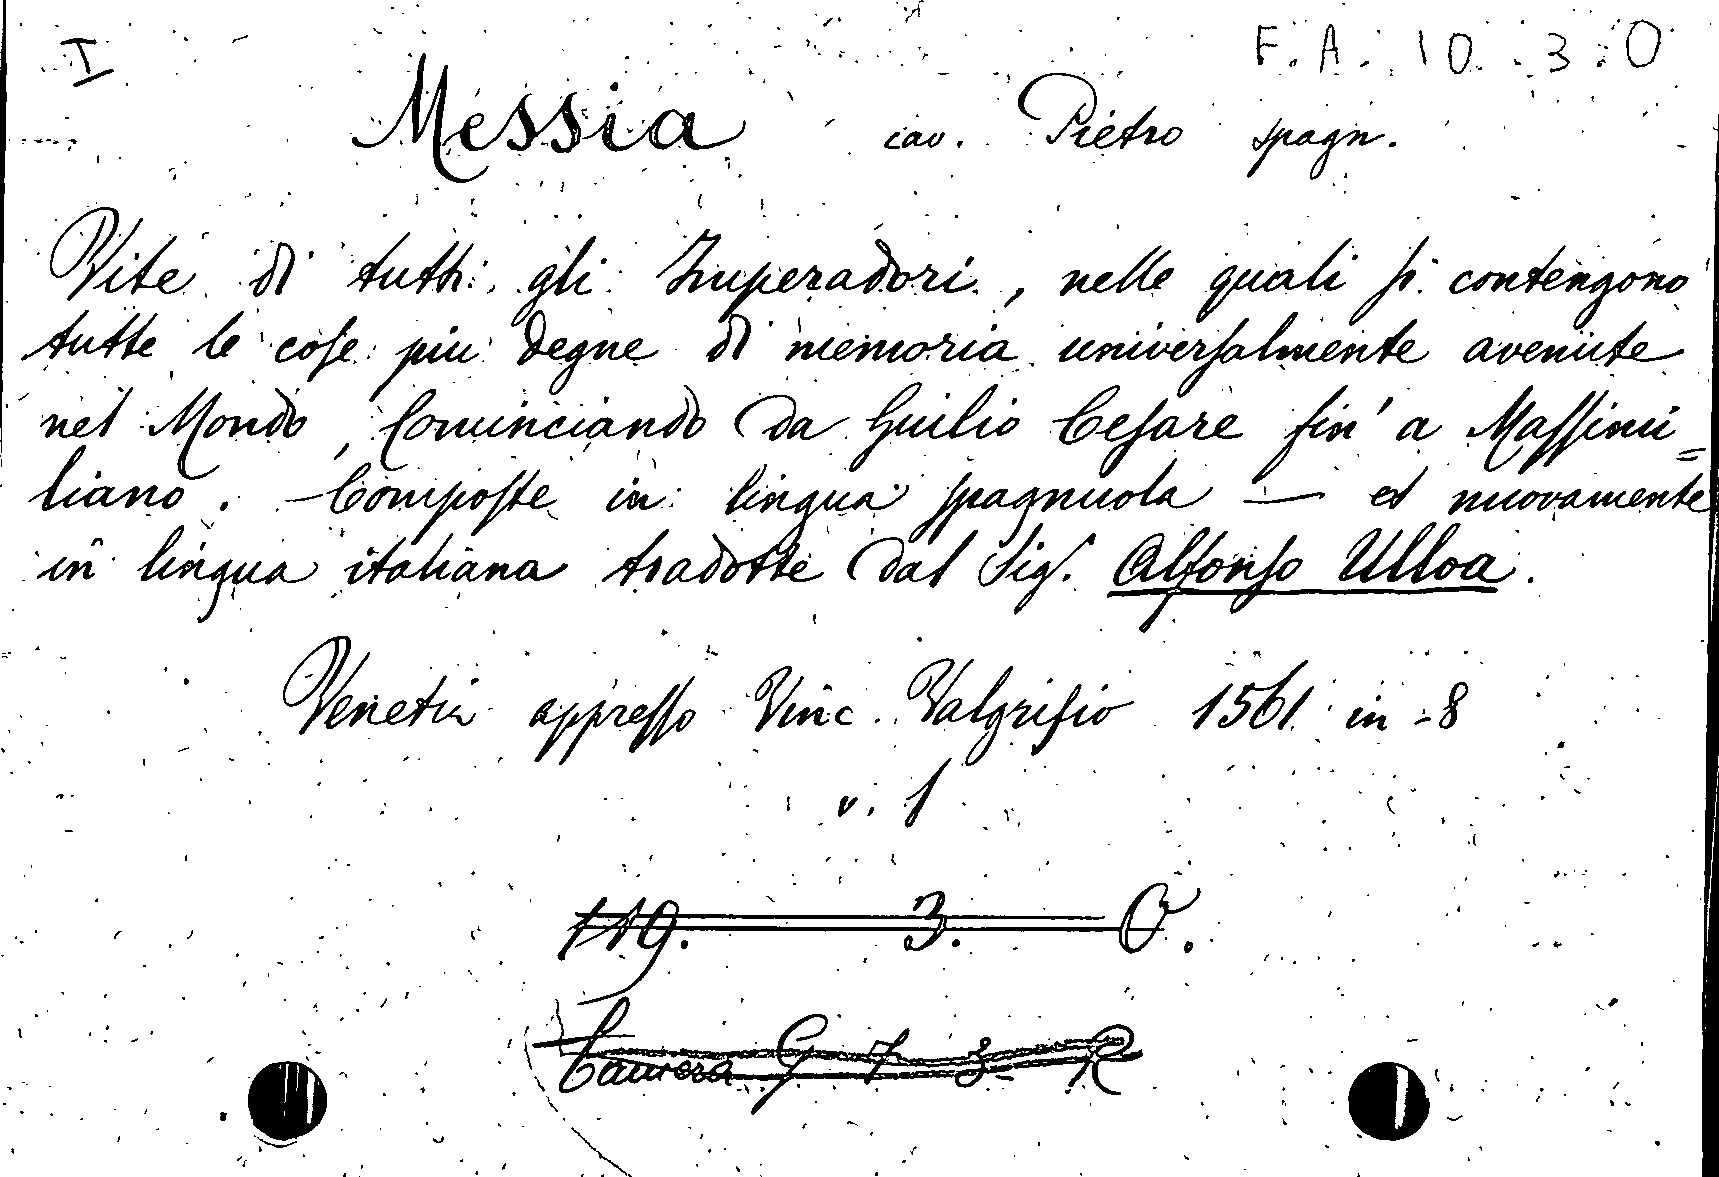 I F.A. 10. 3. O
Messia cav. Pietro spagn.
Vite di tutti gli Imperadori, nelle quali si contengono
tutte le cose piu degne di memoria universalmente avenute
nel Mondo, Cominciando da Giulio Cesare fin' a Massimi=
liano. Composte in lingua spagnuola — et nuovamente
in lingua italiana tradotte dal Sig. Alfonso Ulloa.
Venetia appresso Vinc. Valgrisio 1561 in -8
v. 1
119. 3. O.
Camera G 7 3 R